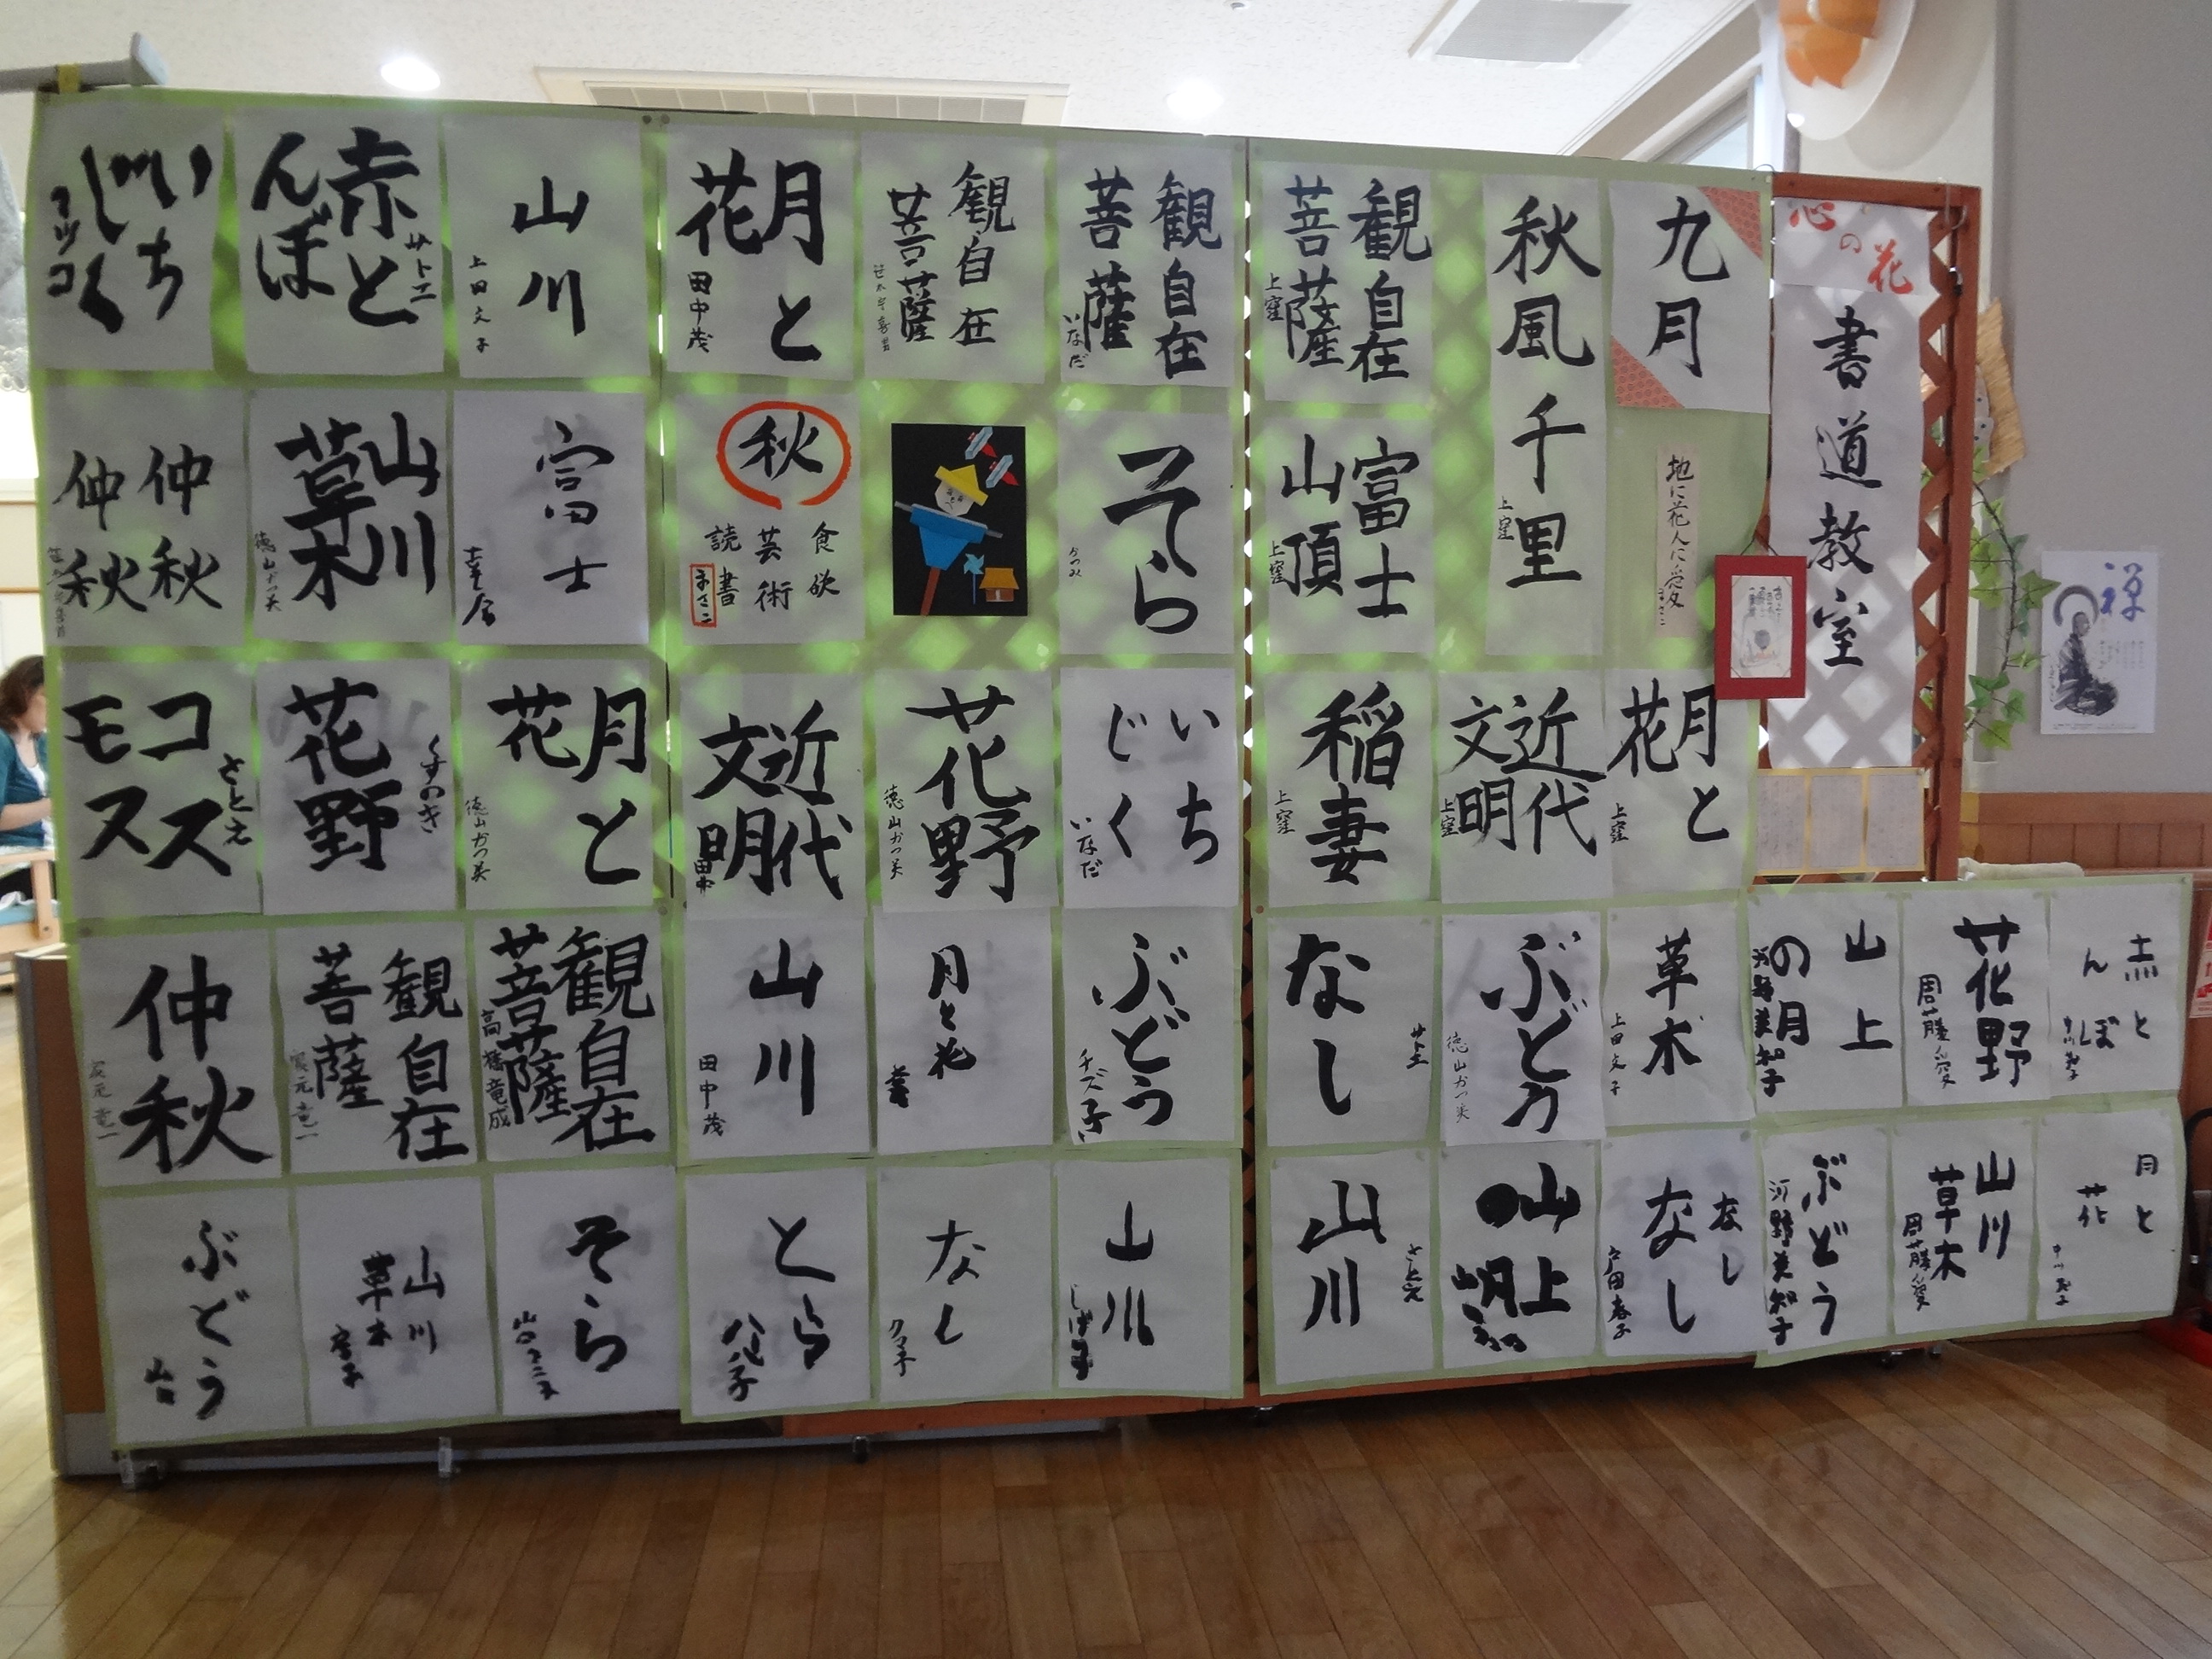 心の花
書道教室
九月
地に花人に愛
秋風千里
上窪
観自在
菩薩
上窪
観自在
菩薩
いなだ
観自在
菩薩
月と
花
田中茂
山川
上田文子
赤と
んぼ
サトエ
いち
じく
富士
山頂
上窪
そら
秋
食欲
芸術
読書
まさこ
富士
山川
草木
徳山かつ美
仲秋
仲秋
月と
花
上窪
近代
文明
上窪
稲妻
上窪
いち
じく
いなだ
花野
徳山かつ美
近代
文明
田中
月と
花
徳山かつ美
花野
くすのき
コス
モス
さとえ
赤と
んぼ
花野
周藤愛
山上
の月
河野美智子
草木
上田文子
ぶどう
徳山かつ美
なし
サトエ
ぶどう
チズ子
月と花
山川
田中茂
観自在
菩薩
高橋竜成
観自在
菩薩
仲秋
月と
花
山川
草木
周藤愛
ぶどう
河野美智子
なし
なし
戸田春子
山上
山川
さとえ
山川
なし
クマ子
とら
そら
山川
草木
ぶどう
禅